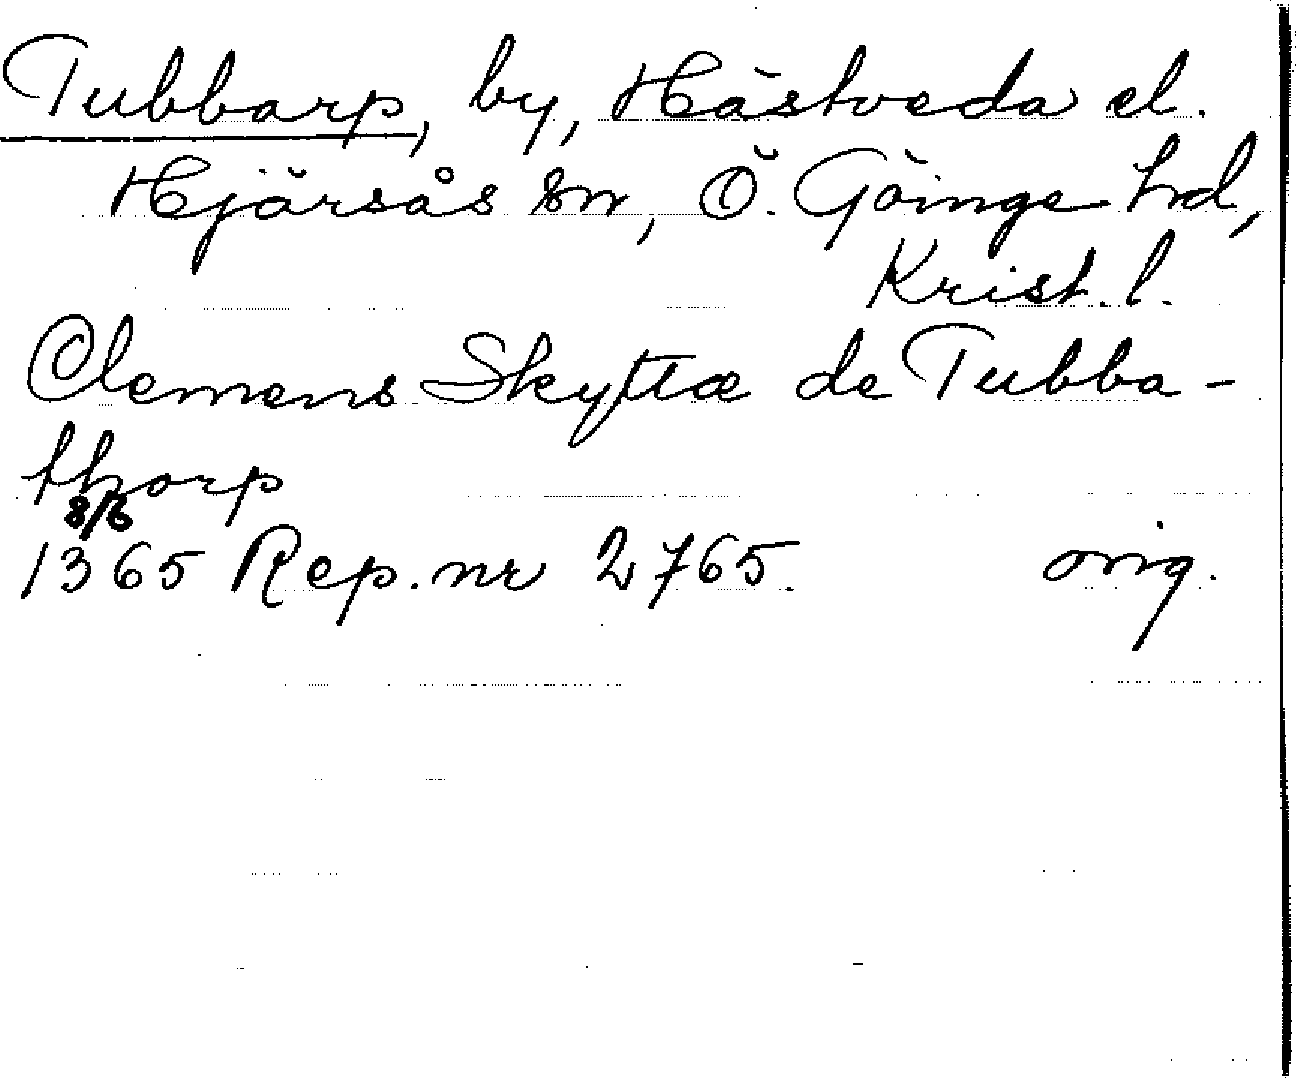 Tubbarp, by, Hästveda el.
Hjärsås sn, Ö. Göinge hd,
Krist. l.
Clemens Skyttæ de Tubba-
thorp
8/6
1365 Rep. nr 2765. orig.